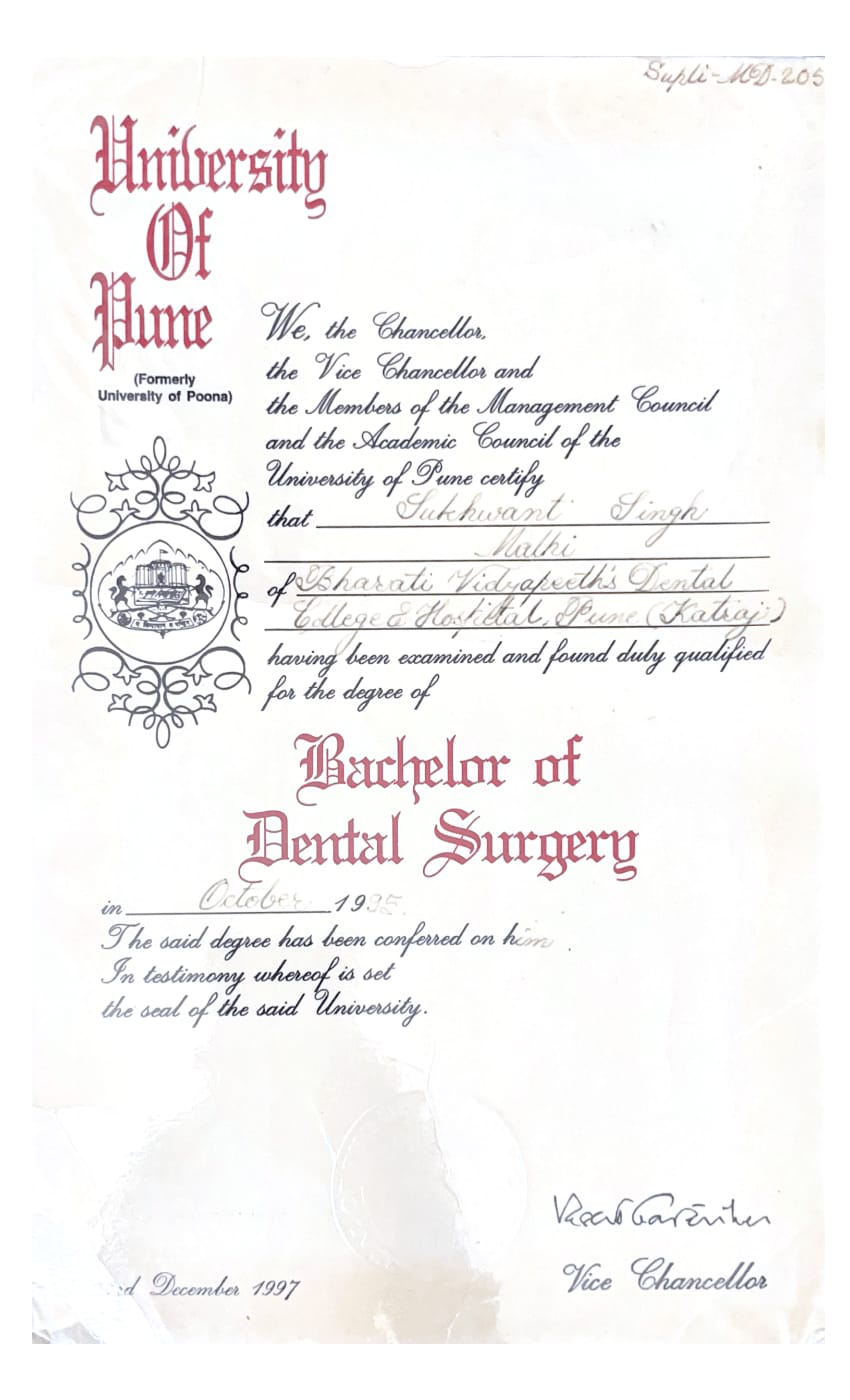 Supli-MD-205
University
Of
Pune
(Formerly
University of Poona)
We, the Chancellor,
the Vice Chancellor and
the Members of the Management Council
and the Academic Council of the
University of Pune certify
that Sukhwant Singh
Malhi
of Bharati Vidyapeeth's Dental
College & Hospital, Pune (Katraj)
having been examined and found duly qualified
for the degree of
Bachelor of
Dental Surgery
in October 1995.
The said degree has been conferred on him.
In testimony whereof is set
the seal of the said University.
Vice Chancellor
December 1997